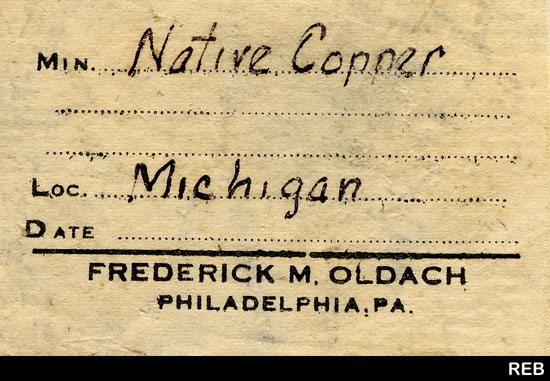 MIN. Native Copper
LOC. Michigan
DATE
FREDERICK M. OLDACH
PHILADELPHIA, PA.
REB